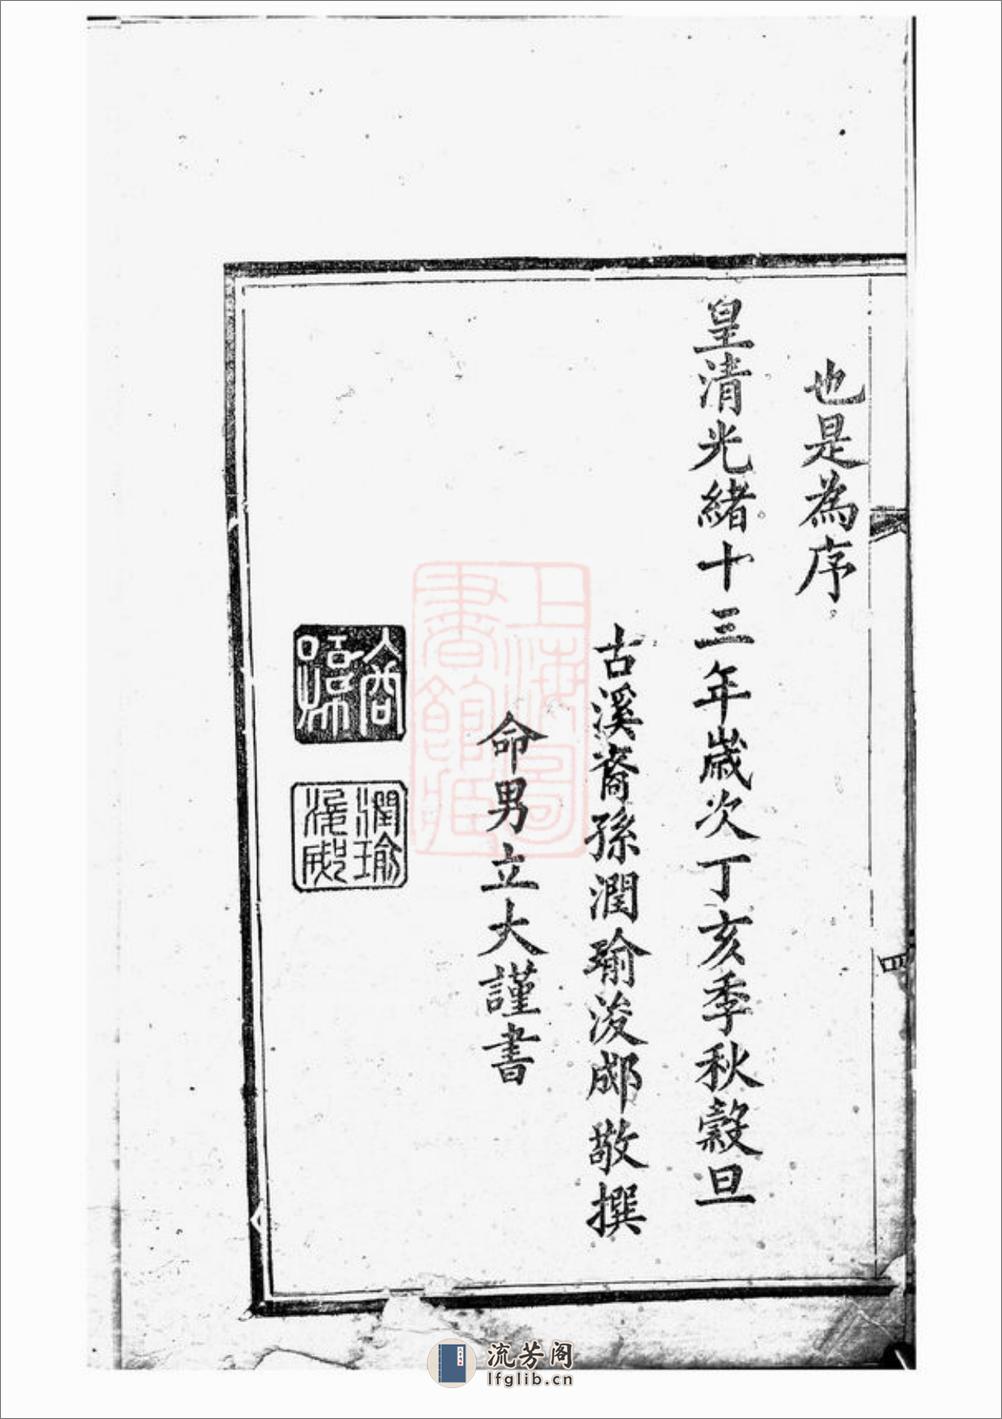 也是為序
皇清光緒十三年歲次丁亥季秋穀旦
古溪裔孫潤瑜浚郕敬撰
命男立大謹書
潤瑜
四
上海圖書館藏
流芳阁
lfglib.cn